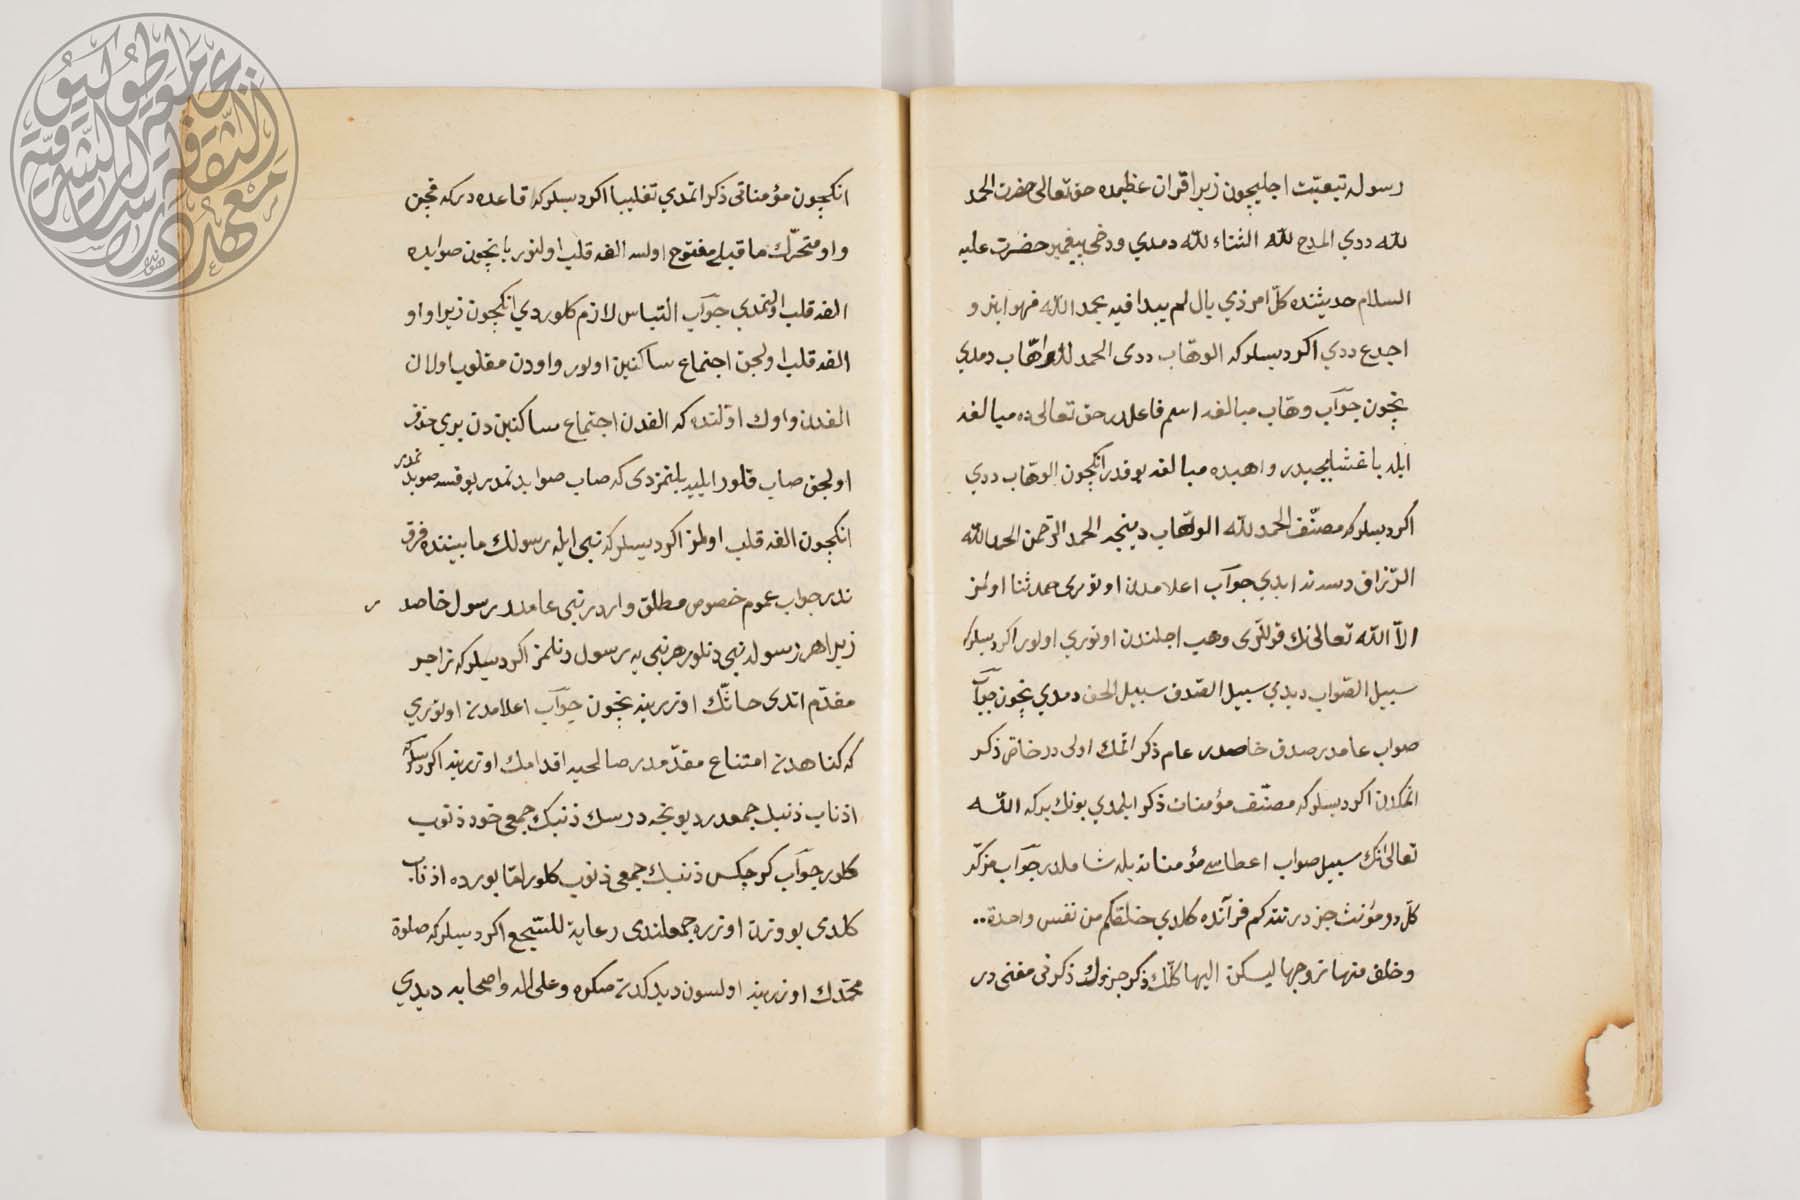 رسوله تبعیّت اجلیچون زیرا قران عظیمده حق تعالی حضرت الحمد
لله ددي المدح لله الثناء لله دمدي ودخی پیغمبر حضرت علیه
السلام حدیثنده کلّ امر ذي بال لم یبدا فیه بحمد الله فهو ابتر و
اجدع ددي اکر دیسلر که الوهّاب ددی الحمد لله واهّاب دمدي
نچون جوآب وهّاب مبالغه اسم فاعلدر حق تعالی ده مبالغه
ایله باغشلیجیدر واهبده مبالغه یوقدر انکچون الوهّاب ددي
اکر دیسلر که مصنّف الحمد لله الوهّاب دینجه الحمد الرّحمن الحمد لله
الرّزاق دسه نه ایدي جوآب اعلامدن اوتوری حمد ثنا اولمز
الاّ الله تعالی نك قوللری وهب اجلندن اوتوري اولور اکر دیسلر که
سبیل الصّواب دیدي سبیل الصّدق سبیل الحق دمدي نچون جوآب
صواب عامدر صدق خاصدر عام ذکر اتمك اولی در خاص ذکر
اتمکدن اکر دیسلر که مصنّف مؤمنات ذکر ایلمدي بونك بركه الله
تعالی نك سبیل صواب اعطاسی مؤمناته بله شاملدر جوآب مزکّر
کلّ در مؤنث جز در نته کم قرآنده کلدي خلقکم من نفس واحدة..
وخلق منها زوجها لیسکن الیها کلّك ذکر جزؤك ذکرنی مغنی در
انکچون مؤمناتی ذکر اتمدي تغلیبا اکر دیسلر که قاعده در که قچن
واو متحرّك ما قبلی مفتوح اولسه الفه قلب اولنور یا نچون صوابده
الفه قلب اولنمدي جوآب التباس لازم کلوردي انکچون زیرا واو
الفه قلب اولجق اجتماع ساکنین اولور واودن مقلوب اولان
الفدن واوك اوّلنده که الفدن اجتماع ساکنین دن بري حذف
اولجق صاب قلور ایلیه بلنمزدی که صاب صوابدنمدر یوقسه صوبدنمدر
انکچون الفه قلب اولمز اکر دیسلر که نبی ایله رسولك مابیننده فرق
ندر جواب عموم خصوص مطلق واردر نبی عامدر رسول خاصدر
زیرا هر رسوله نبی دنلور هر نبی یه رسول دنلمز اکر دیسلر که زاجر
مقدّم اتدی حاثّك اوزرینه نچون جوآب اعلامدن اوتوري
که کناهدن امتناع مقدّمدر صالحیه اقدامك اوزرینه اکر دیسلر که
اذناب ذنبك جمعدر دیونجه درسك ذنبك جمعی خود ذنوب
کلور جوآب کرچکس ذنبك جمعی ذنوب کلور امّا بورده اذناب
کلدی بو وزن اوزره جمعلندی رعایة للسّجع اکر دیسلر که صلوة
محمّدك اوزرینه اولسون دیدکدن صکره وعلی اله واصحابه دیدي